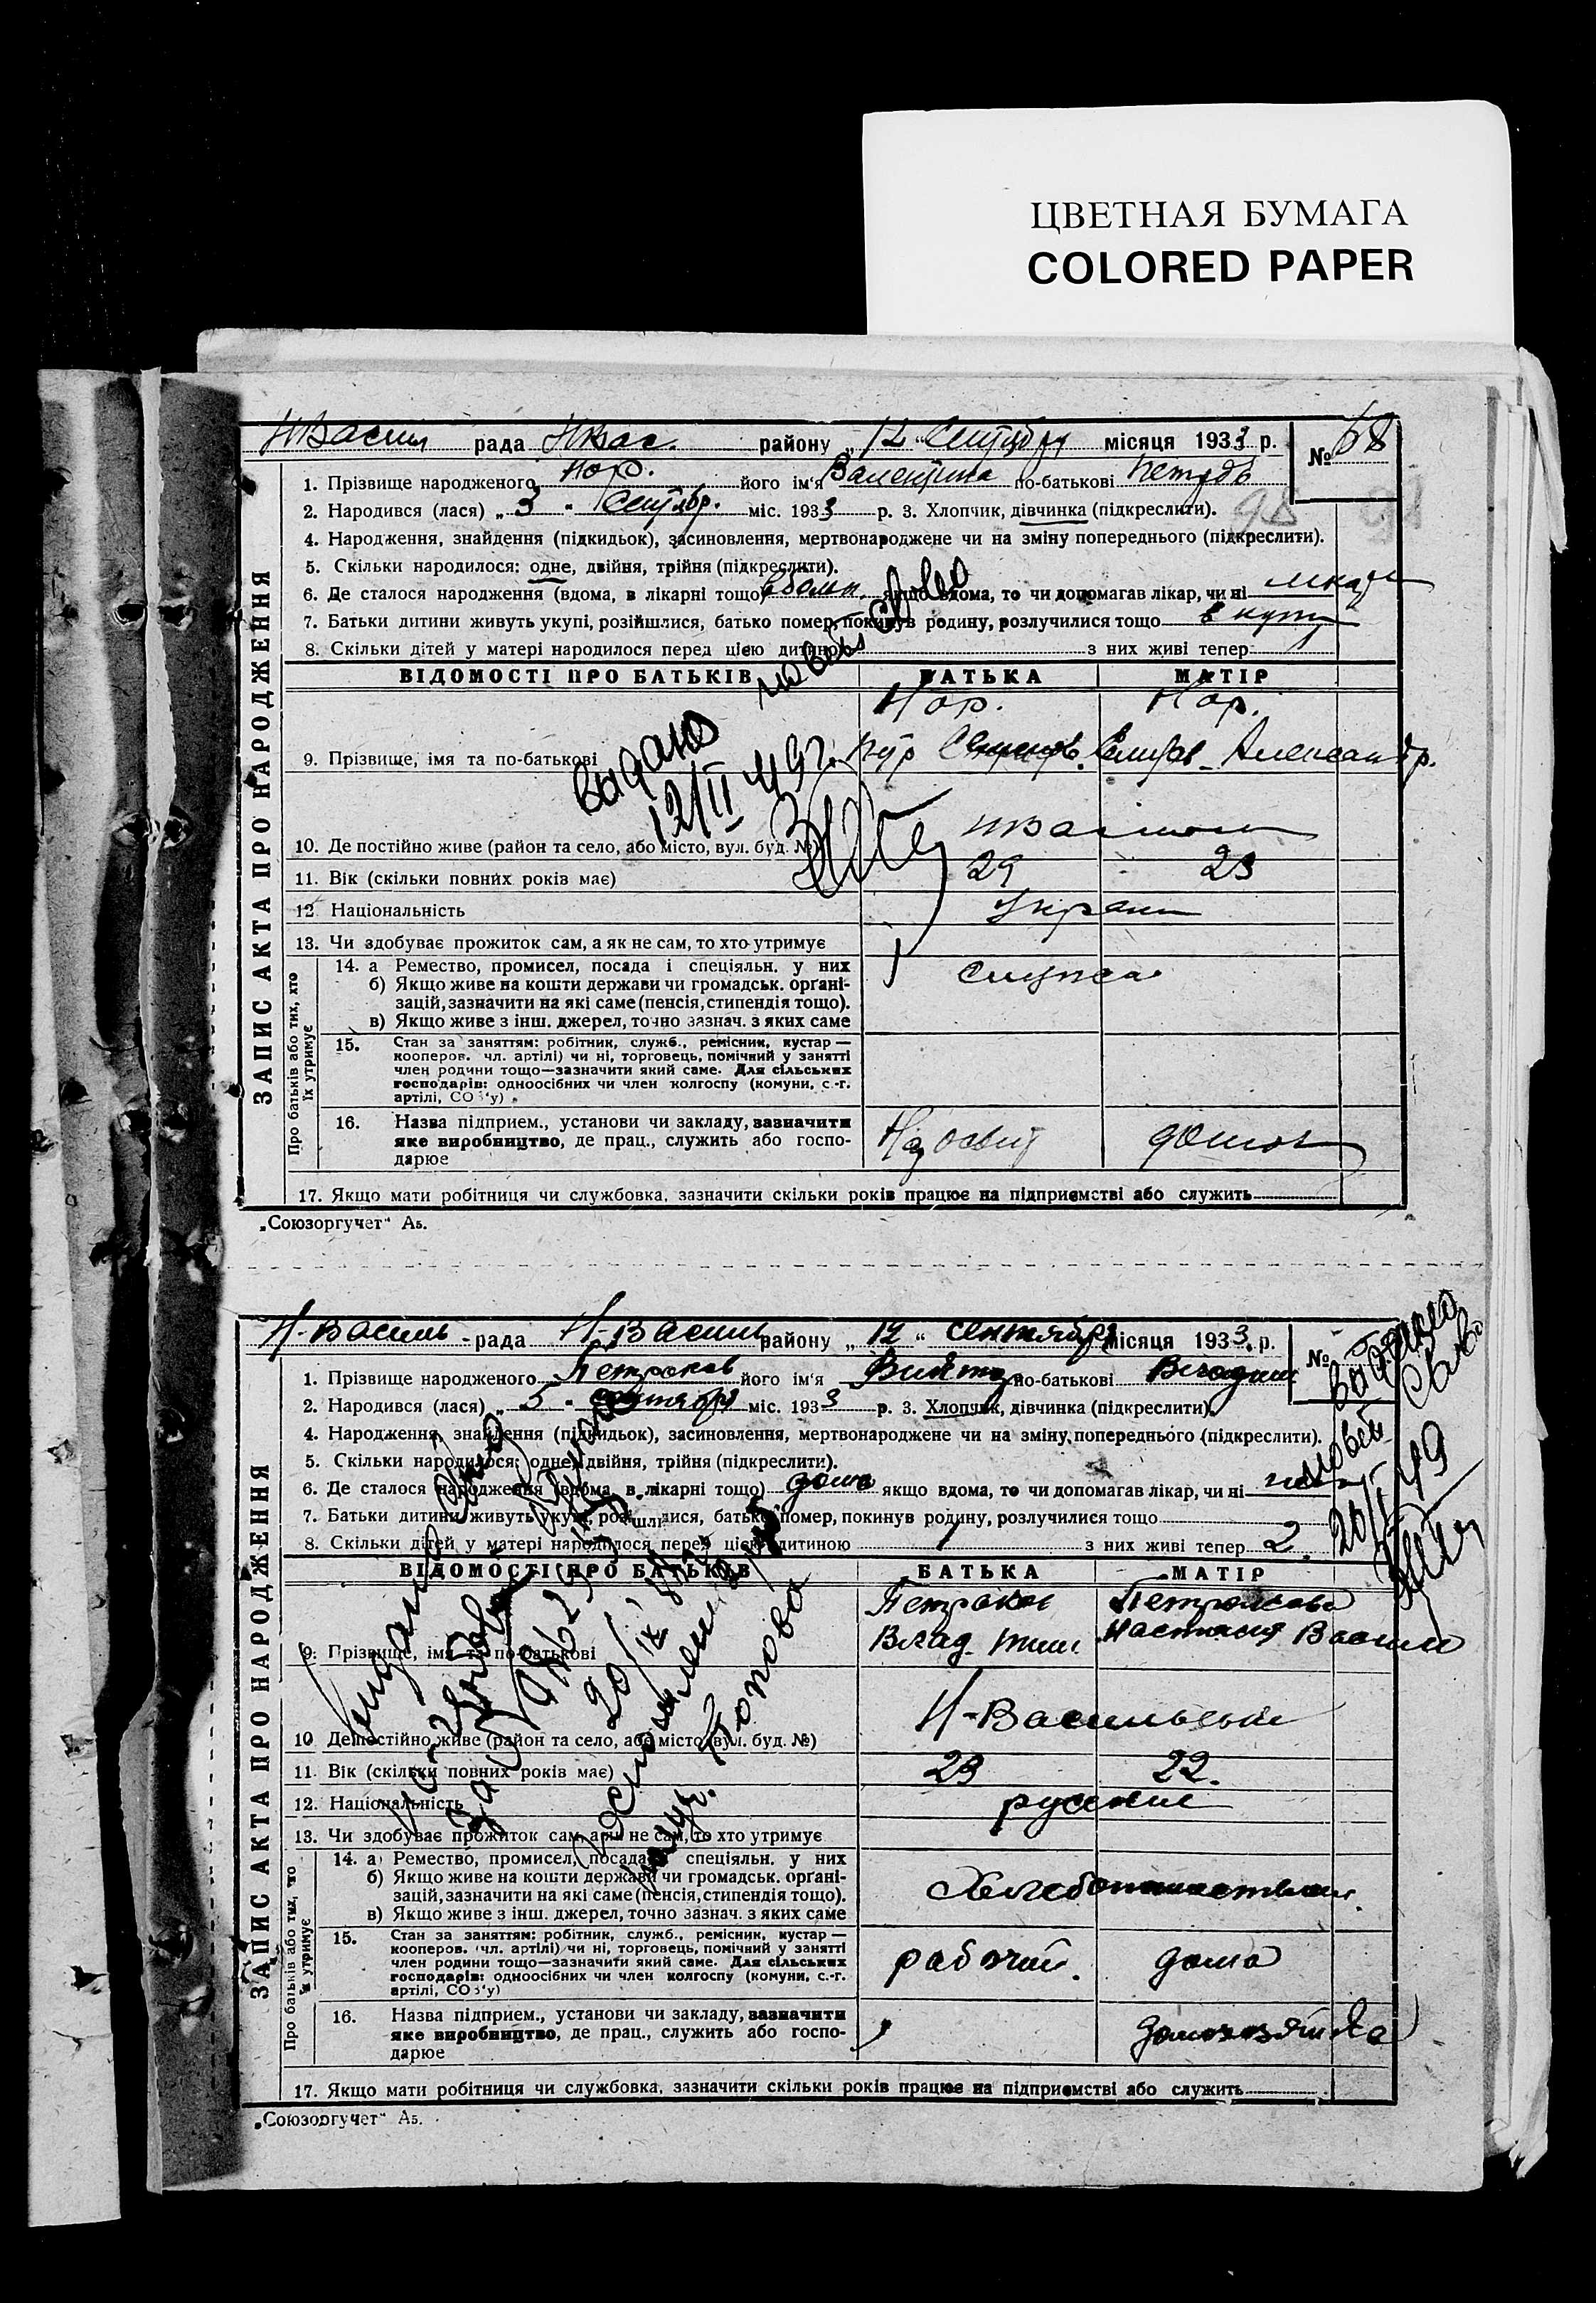 ЦВЕТНАЯ БУМАГА
COLORED PAPER
НВасил рада НВас. району „12“ Сентября місяця 1933 р. № 68
1. Прізвище народженого Нор. його ім'я Валентина по-батькові Петров
2. Народився (лася) „3“ Сентябр. міс. 1933 р. 3. Хлопчик, дівчинка (підкреслити). 98
4. Народження, знайдення (підкидьок), засиновлення, мертвонароджене чи на зміну попереднього (підкреслити).
5. Скільки народилося: одне, двійня, трійня (підкреслити).
6. Де сталося народження (вдома, в лікарні тощо) якщо вдома, то чи допомагав лікар, чи ні
7. Батьки дитини живуть укупі, розійшлися, батько помер, покинув родину, розлучилися тощо в купи
8. Скільки дітей у матері народилося перед цією дитиною з них живі тепер
ВІДОМОСТІ ПРО БАТЬКІВ БАТЬКА МАТІР
Нор. Нор.
9. Прізвище, імя та по-батькові Александр.
видано
12/II 49г.
10. Де постійно живе (район та село, або місто, вул. буд. №)
11. Вік (скільки повних років має) 29 23
12. Національність Украин
13. Чи здобуває прожиток сам, а як не сам, то хто утримує
ЗАПИС АКТА ПРО НАРОДЖЕННЯ
Про батьків або тих, хто їх утримує
14. а Ремество, промисел, посада і спеціяльн. у них
б) Якщо живе на кошти держави чи громадськ. орґані-
зацій, зазначити на які саме (пенсія, стипендія тощо).
в) Якщо живе з інш. джерел, точно зазнач. з яких саме
15. Стан за заняттям: робітник, служб., ремісник, кустар —
кооперов. чл. артілі) чи ні, торговець, помічний у занятті
член родини тощо—зазначити який саме. Для сільських
господарів: одноосібних чи член колгоспу (комуни, с.-г.
артілі, СОЗ'у)
16. Назва підприєм., установи чи закладу, зазначити
яке виробництво, де прац., служить або госпо-
дарює
17. Якщо мати робітниця чи службовка, зазначити скільки років працює на підприємстві або служить
„Союзоргучет“ А5.
Н-Василь - рада Н-Василь району „12“ сентября місяця 1933 р. №
1. Прізвище народженого Петраков його ім'я Виктор по-батькові
2. Народився (лася) „5“ сентября міс. 1933 р. 3. Хлопчик, дівчинка (підкреслити).
4. Народження, знайдення (підкидьок), засиновлення, мертвонароджене чи на зміну попереднього (підкреслити).
5. Скільки народилося: одне, двійня, трійня (підкреслити).
6. Де сталося народження (вдома, в лікарні тощо) дома якщо вдома, то чи допомагав лікар, чи ні
7. Батьки дитини живуть укупі, розійшлися, батько помер, покинув родину, розлучилися тощо
8. Скільки дітей у матері народилося перед цією дитиною 1 з них живі тепер 2.
ВІДОМОСТІ ПРО БАТЬКІВ БАТЬКА МАТІР
Петраков Петракова
Влад. Тим. Настасия Васил
9. Прізвище, імя та по-батькові
Н-Васильевки
10. Де постійно живе (район та село, або місто, вул. буд. №)
11. Вік (скільки повних років має) 23 22.
12. Національність русские
13. Чи здобуває прожиток сам, а як не сам, то хто утримує
ЗАПИС АКТА ПРО НАРОДЖЕННЯ
Про батьків або тих, хто їх утримує
14. а) Ремество, промисел, посада і спеціяльн. у них
б) Якщо живе на кошти держави чи громадськ. орґані-
зацій, зазначити на які саме (пенсія, стипендія тощо).
в) Якщо живе з інш. джерел, точно зазнач. з яких саме
15. Стан за заняттям: робітник, служб., ремісник, кустар —
кооперов. чл. артілі) чи ні, торговець, помічний у занятті
член родини тощо—зазначити який саме. Для сільських
господарів: одноосібних чи член колгоспу (комуни, с.-г.
артілі, СОЗ'у)
рабочий. дома
16. Назва підприєм., установи чи закладу, зазначити
яке виробництво, де прац., служить або госпо-
дарює
домохозяйка
17. Якщо мати робітниця чи службовка, зазначити скільки років працює на підприємстві або служить
„Союзоргучет“ А5.